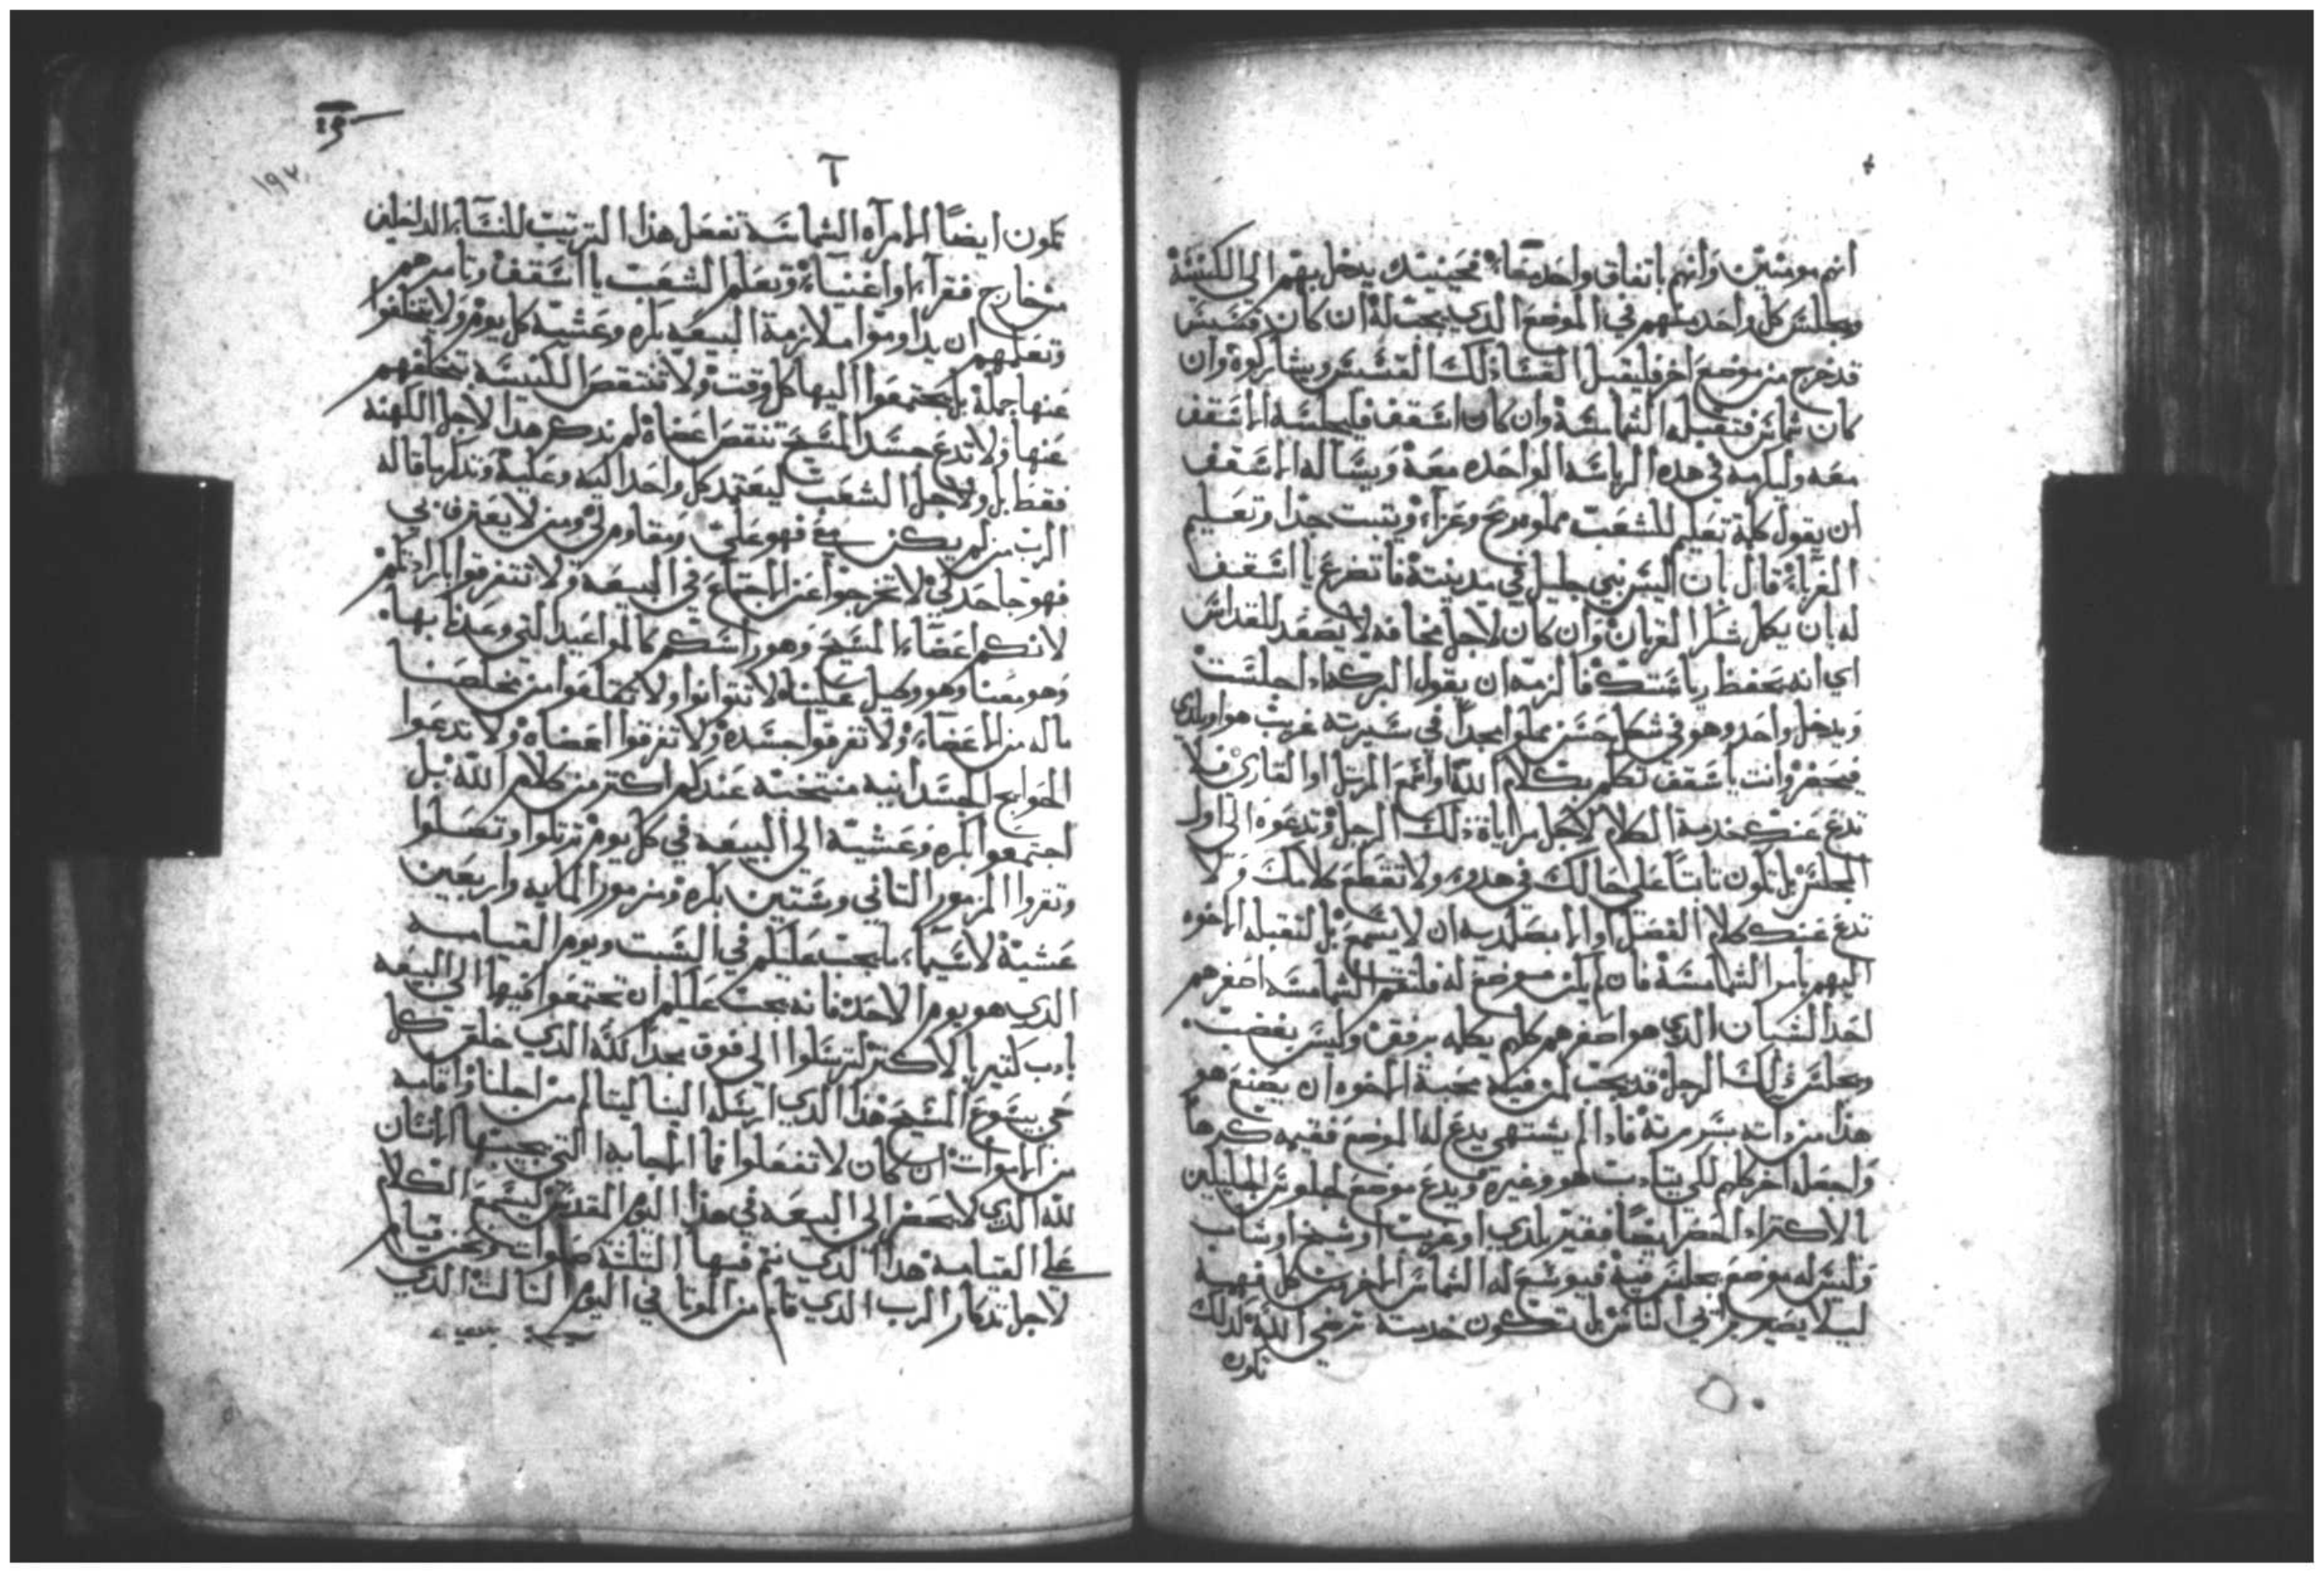 انهم مومنين وانهم باتفاق واحد معا فحينيذ يدخل بهم الى الكنيسة
ويجلس كل واحد منهم في الموضع الذي يجب له ان كان قسيس
قد خرج من موضع اخر فليقبل القسا ذلك القسيس ويشاركوه وان
كان شماس فتقبله الشمامسة وان كان اسقف فليجلسه الاسقف
معه وليكرمه في هذه الرياسه الواحده معه ويساله الاسقف
ان يقول كلمة تعليم للشعب مملوه وعزاء ويثبت جدا وتعليم
الغرباء قال بان ليس نبي جليل في مدينته فاتضرع يا اسقف
له بان يكمل شكر القربان وان كان لاجل مخافه لا يصعد للقداس
اي انه يحفظ رياستك فالزمه ان يقول البركه اذا جلست
ويدخل واحد وهو في شكل حسن مملوا مجدا في سيرته غريب هو او بلدي
فيحضر وانت ياسقف تتكلم بكلام الله او تسمع المرتل او القاري فلا
تدع عنك خدمة الكلام لاجل مراياة ذلك الرجل وتدعوه الى اول
المجلس بل تكون ثابتا على حالك في هدوء ولا تقطع كلامك ولا
تدع عنك كلام الفصل او الابصلمديه ان لا يسمع بل لتقبله الاخوه
اليهم بامر الشمامسة فان لم يكن موضع له فلتقم الشمامسه اصغرهم
احد الشبان الذي هو اصغرهم كلهم يكلمه برفق وليس بغضب
ويجلس ذلك الرجل قد يجب لمن فيه محبة الاخوه ان يصنع هو
هذا من ذاته بسرعة فاذا لم يشتهي يدع له الموضع فقيمه كرها
واجعله اخر كلهم لكي يتادب هو وغيره ويدع موضع لجلوس الجليلين
بالاكثر اذا حضر ايضا فقير بلدي او غريب او شيخ او شاب
وليس له موضع يجلس فيه فيوسع له الشماس
ليلا يصير يرايي الناس بل تكون خدمته ترضي الله لذلك
تكون
١٩٢
تكون ايضا الامراه الشماسة تفعل هذا الترتيب للنساء الداخلين
من خارج فقراء او اغنياء وتعلم الشعب يا اسقف وتامرهم
وتعلمهم ان يداوموا ملازمة البيعه باكره وعشيه كل يوم ولا يتخلفوا
عنها جملة بل يجتمعوا اليها كل وقت ولا تنتقص الكنيسة بتخلفهم
عنها ولا تدع جسد المسيح تنقص اعضاه لم نذكر هذا لاجل الكهنه
فقط بل ولاجل الشعب ليعتمد كل واحد اليه وعليه ونذكر ما قاله
الرب من لم يكن معي فهو علي ومقاوم لي ومن لا يعترف بي
فهو جاحد لي لا تخرجوا عن الاجتماع في البيعه ولا تتفرقوا بارادتكم
لانكم اعضاء المسيح وهو راسكم كالمواعيد التي وعدنا بها
وهو معنا وهو وكيل علينا لا تتوانوا ولا تقلعوا من مخلصنا
ماله من الاعضاء ولا تفرقوا جسده ولا تفرقوا اعضاه ولا تدعوا
الحوايج الجسدانيه منتخبه عندكم اكثر من كلام الله بل
اجتمعوا باكره وعشية الى البيعه في كل يوم ترتلوا وتصلوا
وتقروا المزمور الثاني وستين باكره ومزمور المايه واربعين
عشية لاسيما ما يجب عليكم في السبت ويوم القيامه
الذي هو يوم الاحد فانه يجب عليكم ان تجتمعوا فيها الى البيعه
بادب كثير بالاكثر لترسلوا الى فوق مجدا لله الذي خلق كل
شي بيسوع المسيح هذا الذي ارسله الينا ليتالم من اجلنا واقامه
من الاموات ان كان لا تفعلوا فما الاجابه التي يجيبها الانسان
لله الذي لا يحضر الى البيعه في هذا اليوم المقدس ليسمع الكلام
على القيامة هذا الذي نتم فيها الثلثة صلوات ونحن قيام
لاجل تذكار الرب الذي قام من الموتا في اليوم الثالث الذي